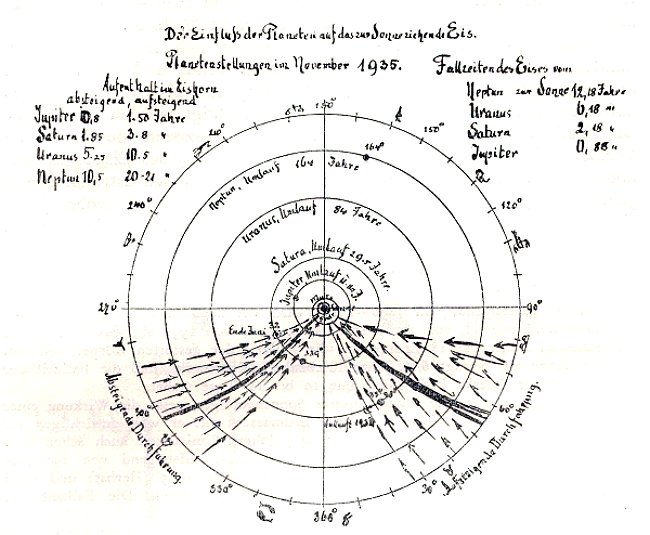 Der Einfluß der Planeten auf das zur Sonne ziehende Eis.
Planetenstellungen im November 1935.
Aufenthalt im Eishorn
absteigend, aufsteigend
Jupiter 0,8 1.50 Jahre
Saturn 1.85 3.8 "
Uranus 5.25 10.5 "
Neptun 10,5 20-21 "
Fallzeiten des Eises vom
Neptun zur Sonne 12,18 Jahre
Uranus 6,18 "
Saturn 2,18 "
Jupiter 0,88 "
180°
150°
120°
90°
60°
30°
360°
330°
300°
270°
240°
210°
164°
Neptun, Umlauf 164 Jahre
Uranus, Umlauf 84 Jahre
Saturn, Umlauf 29.5 Jahre
Jupiter Umlauf
Mars
Ende Juni
339°
Ankunft
Absteigende Durchführung.
Aufsteigende Durchführung.